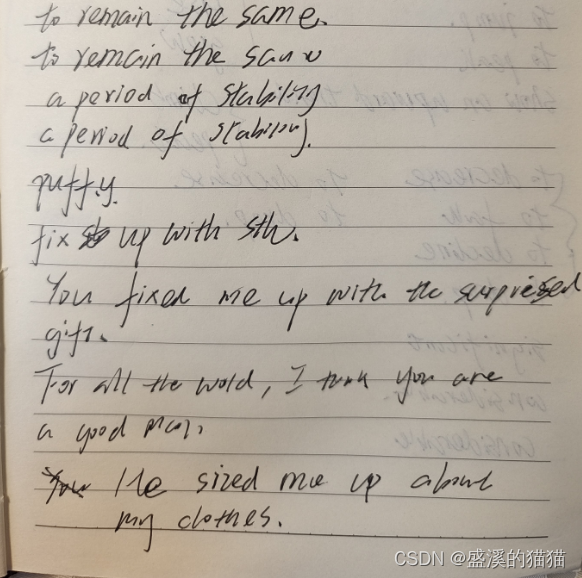 to remain the same.
to remain the same
a period of stability
a period of stability.
puffy.
fix up with sth.
You fixed me up with the surprised
gift.
For all the wold, I think you are
a good man.
He sized me up about
my clothes.
CSDN @盛溪的猫猫